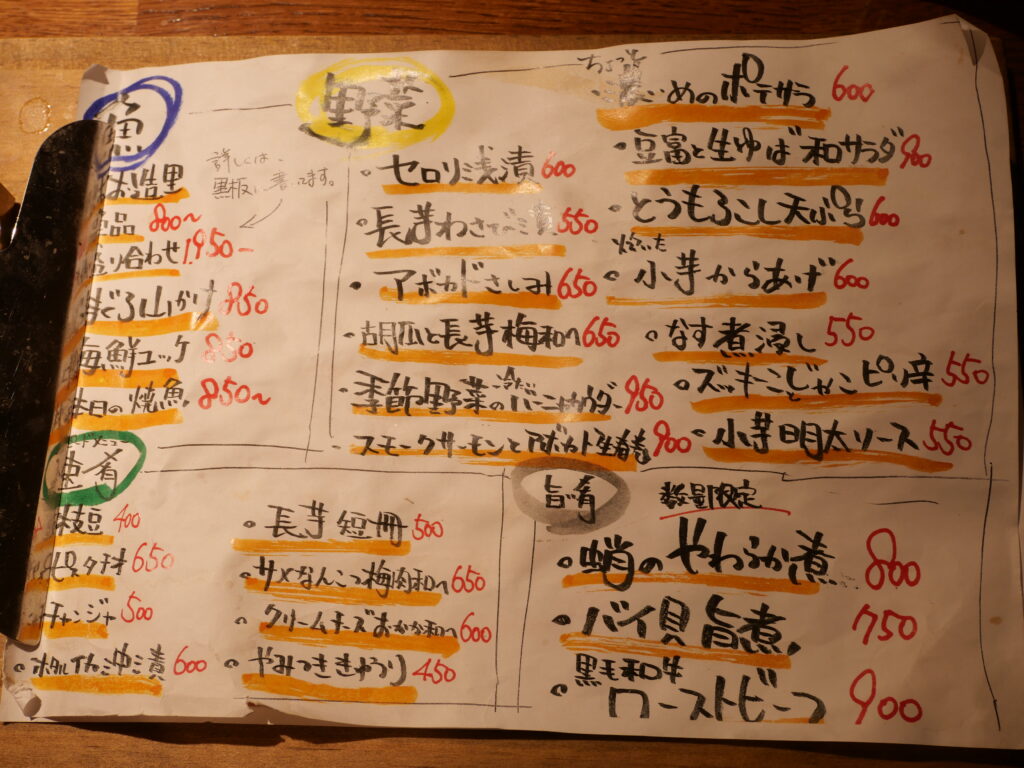 魚
詳しくは、
黒板に書いてます。
お造里
単品 800〜
盛り合わせ 1,950〜
まぐろ山かけ 850
海鮮ユッケ 850
本日の焼魚 850〜
野菜
・セロリ浅漬 600
・長芋わさび漬 550
・アボカドさしみ 650
・胡瓜と長芋梅和へ 650
・季節野菜の冷たいバーニャカウダー 950
・スモークサーモンとアボカド生春巻 900
ちょっと
めのポテサラ 600
・豆富と生ゆば和サラダ 900
・とうもろこし天ぷら 600
・小芋からあげ 600
・なす煮浸し 550
・ズッキーニとじゃこピリ辛 550
・小芋明太ソース 550
肴
枝豆 400
ピスタチオ 650
チャンジャ 500
・ホタルイカ沖漬 600
・長芋短冊 500
・サメなんこつ梅肉和へ 650
・クリームチーズおかか和へ 600
・やみつききゅうり 450
旨い肴
数量限定
・蛸のやわらか煮 800
・バイ貝旨煮 750
・黒毛和牛
ローストビーフ 900